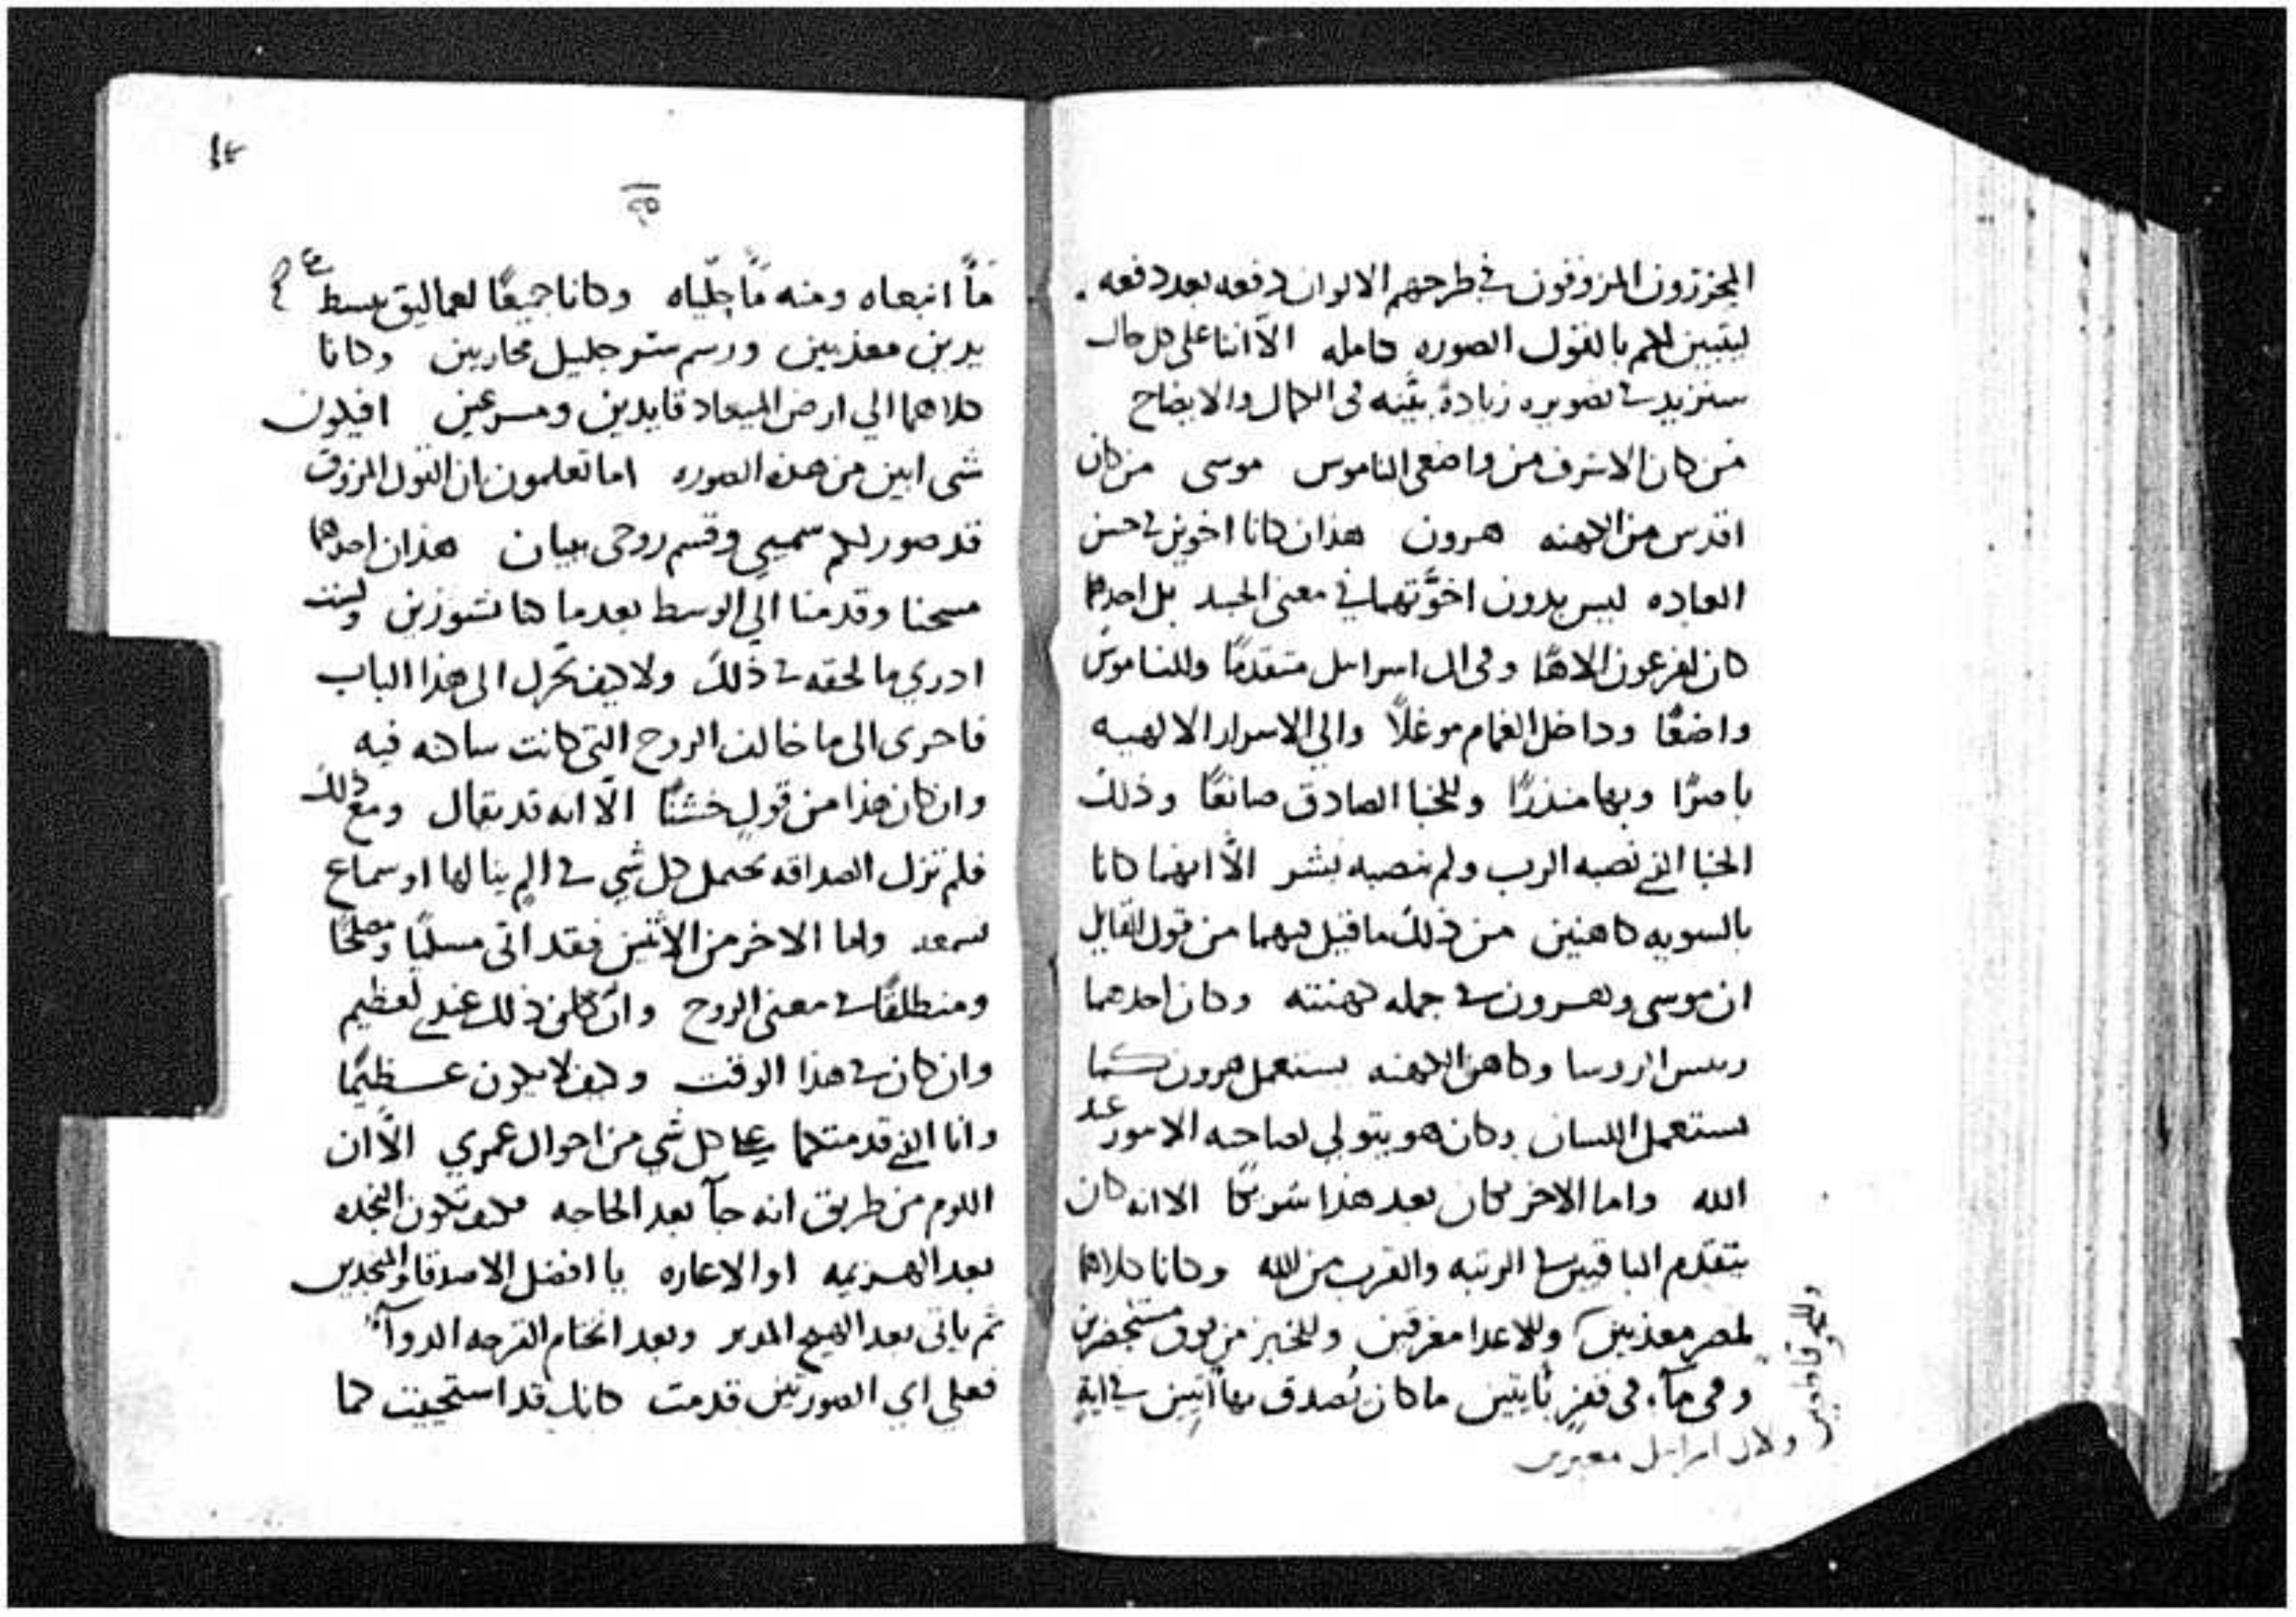 المخززون المزوقون في طرحهم الالوان دفعه بعد دفعه .
ليتبين لكم بالقول الصوره كامله الّا اننا على كل حال
سنزيد في تصويره زيادةً بيّنه في الكمال والايضاح
من كان الاشرف من واضعي الناموس موسى من كان
اقدس من الكهنه هرون هذان كانا اخوين في حسن
العباده ليس بدون اخوّتهما في معنى الجسد بل احدهما
كان لفرعون الاهًا وفي ال اسراييل متقدمًا وللناموس
واضعًا وداخل الغمام موغلًا والي الاسرار الالهيه
باصرًا وبها منذرًا وللخبا الصادق صانعًا وذلك
الخبا الذي نصبه الرب ولم ينصبه بشر الّا انهما كانا
بالسويه كاهنين من ذلك ما قيل فيهما من قول القايل
ان موسى وهرون في جمله كهنته وكان احدهما
رييس الروسا وكاهن الكهنه يستعمل هرون كما
يستعمل اللسان وكان هو يتولي لصاحبه الامور عند
الله واما الاخر فكان بعد هذا شريكًا الا انه كان
يتقدم الباقين في الرتبه والقرب من الله وكانا كلاهما
لمصر معذبين وللاعدا مغرقين وللخبز من فوق مستحضرين
وفي مآء في قفرٍ ثابتين ما كان يُصدق بها اتيين في اية
ولال اسراييل معبرين
١٤
١٥
مآً انبعاه ومنه مآً حلّياه وكانا جميعًا لعماليق ببسط
يدين معذبين ورسم ستر جليل محاربين وكانا
كلاهما الي ارض الميعاد قايدين ومسرعين افيكون
شي ابين من هذه الصوره اما تعلمون ان القول المزوق
قد صور لكم سميي وقسم روحي ببيان هذان احدهما
مسحنا وقدمنا الي الوسط بعد ما كنا نشورين ولست
ادري ما لحقه في ذلك ولا كيف تحرك الى هذا الباب
فاحرى الى ما خالف الروح التي كانت ساكنه فيه
وان كان هذا من قولٍ خشنًا الّا انه قد يقال ومع ذلك
فلم تزل الصداقه تحتمل كل شي في الم ينالها او سماع
تسمعه واما الاخر من الاثنين فقد اتى مسلّيًا ومصلحًا
ومنطلقًا في معنى الروح وان كان ذلك عندي لعظيم
وان كان في هذا الوقت وكيف لا يكون عظيمًا
وانا الذي قدمتكما على كل شي من احوال عمري الّا ان
اللوم من طريق انه جآ بعد الحاجه فكيف تكون النجده
بعد الهزيمه او الاعاره يا افضل الاصدقا والمنجدين
ثم ياتي بعد الهيج المدبر وبعد انختام القرحه الدوآ
فعلي اي الصورتين قدمت كانك قد استحييت كما